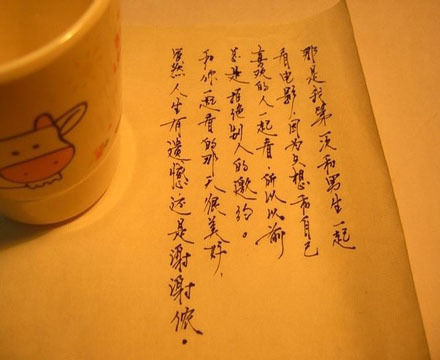 那是我第一次和男生一起
看电影，因为只想有自己
喜欢的人一起看，所以以前
总是拒绝别人的邀约。
和你一起看的那天很美好，
虽然人生有遗憾，还是谢谢你。